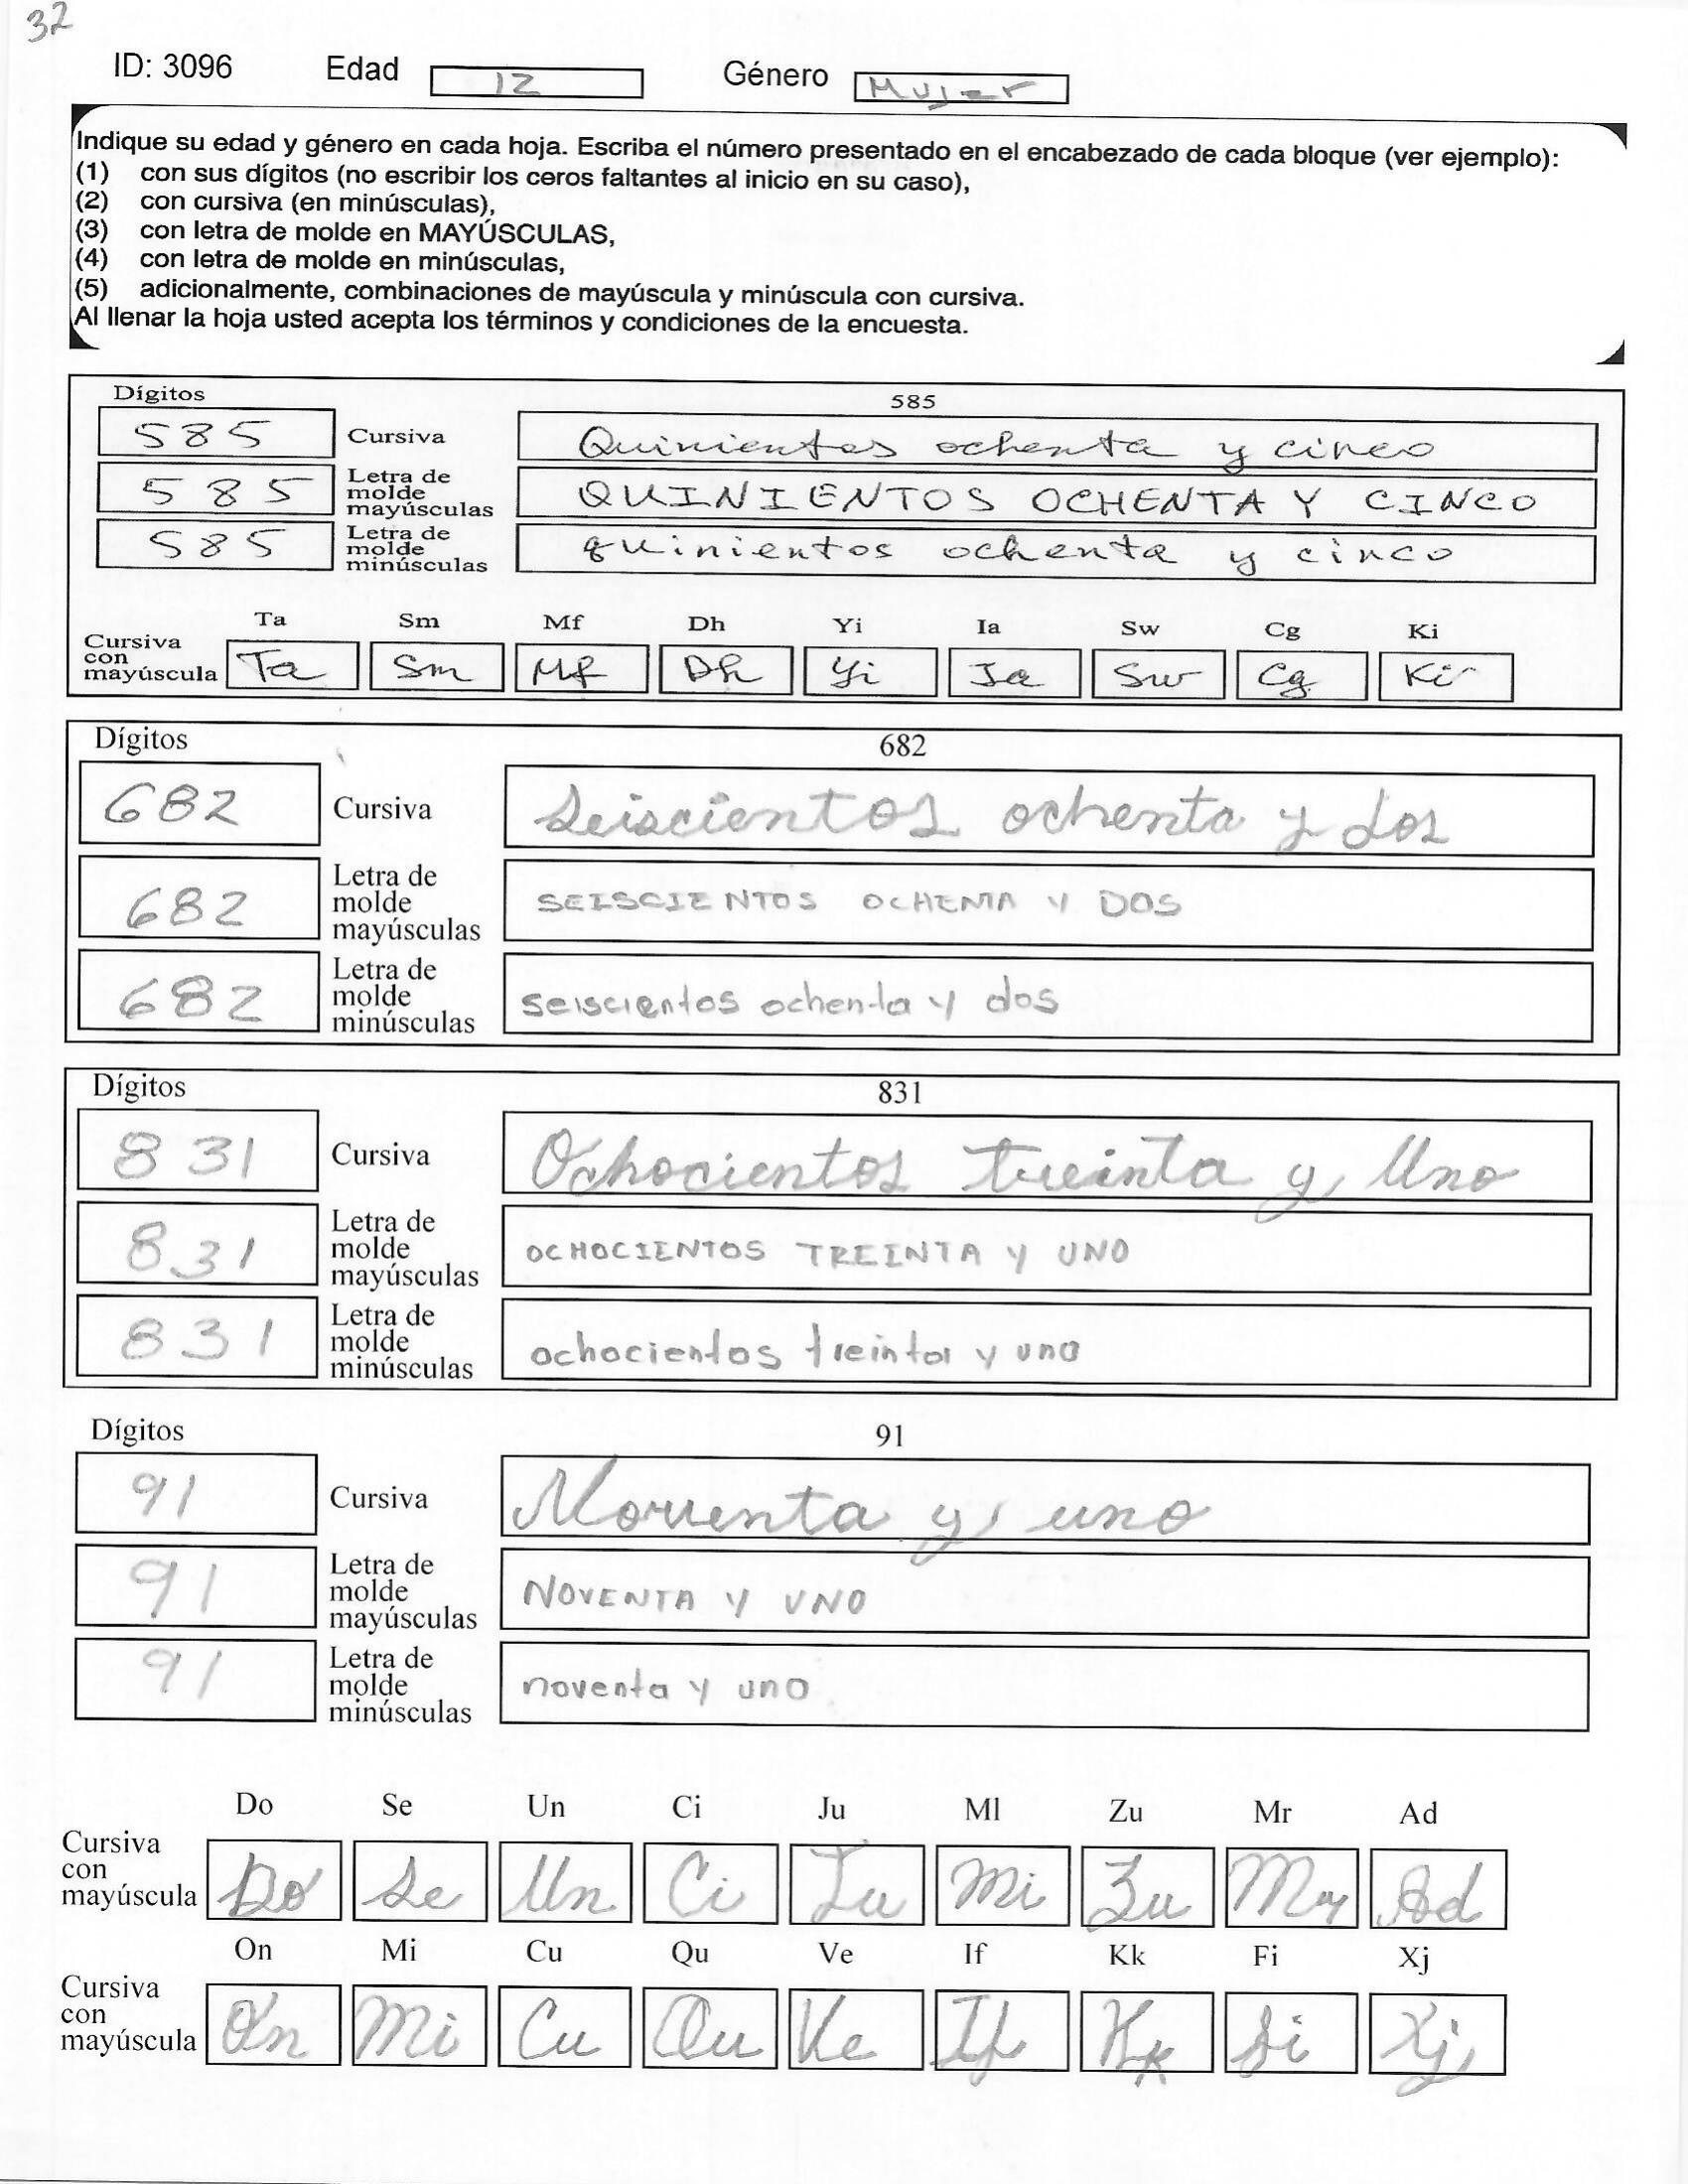 32
ID: 3096 Edad 12 Género Mujer
Indique su edad y género en cada hoja. Escriba el número presentado en el encabezado de cada bloque (ver ejemplo):
(1) con sus dígitos (no escribir los ceros faltantes al inicio en su caso),
(2) con cursiva (en minúsculas),
(3) con letra de molde en MAYÚSCULAS,
(4) con letra de molde en minúsculas,
(5) adicionalmente, combinaciones de mayúscula y minúscula con cursiva.
Al llenar la hoja usted acepta los términos y condiciones de la encuesta.
Dígitos 585
585 Cursiva Quinientos ochenta y cinco
585 Letra de molde mayúsculas QUINIENTOS OCHENTA Y CINCO
585 Letra de molde minúsculas quinientos ochenta y cinco
Ta Sm Mf Dh Yi Ia Sw Cg Ki
Cursiva con mayúscula Ta Sm Mf Dh Yi Ia Sw Cg Ki
Dígitos 682
682 Cursiva seiscientos ochenta y dos
682 Letra de molde mayúsculas SEISCIENTOS OCHENTA Y DOS
682 Letra de molde minúsculas seiscientos ochenta y dos
Dígitos 831
831 Cursiva Ochocientos treinta y Uno
831 Letra de molde mayúsculas OCHOCIENTOS TREINTA Y UNO
831 Letra de molde minúsculas ochocientos treinta y uno
Dígitos 91
91 Cursiva Noventa y uno
91 Letra de molde mayúsculas NOVENTA Y UNO
91 Letra de molde minúsculas noventa y uno
Do Se Un Ci Ju Ml Zu Mr Ad
Cursiva con mayúscula Do Se Un Ci Ju Mi Zu Mr Ad
On Mi Cu Qu Ve If Kk Fi Xj
Cursiva con mayúscula On Mi Cu Qu Ve If Kk Fi Xj